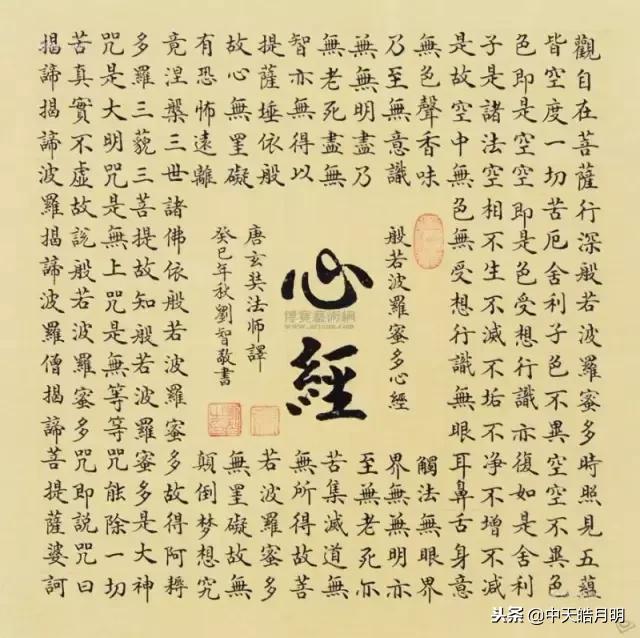 觀自在菩薩行深般若波羅蜜多時照見五蘊
皆空度一切苦厄舍利子色不異空空不異色
色即是空空即是色受想行識亦復如是舍利
子是諸法空相不生不滅不垢不净不增不減
是故空中無色無受想行識無眼耳鼻舌身意
無色聲香味
觸法無眼界
乃至無意識
界無無明亦
無無明盡乃
至無老死亦
無老死盡無
苦集滅道無
智亦無得以
無所得故菩
提薩埵依般
若波羅蜜多
故心無罣礙
無罣礙故無
有恐怖遠離
顛倒梦想究
竟涅槃三世諸佛依般若波羅蜜多故得阿耨
多羅三藐三菩提故知般若波羅蜜多是大神
咒是大明咒是無上咒是無等等咒能除一切
苦真實不虛故說般若波羅蜜多咒即說咒曰
揭諦揭諦波羅揭諦波羅僧揭諦菩提薩婆訶
般若波羅蜜多心經
心經
唐玄奘法师譯
癸巳年秋劉智敬書
头条 @中天皓月明